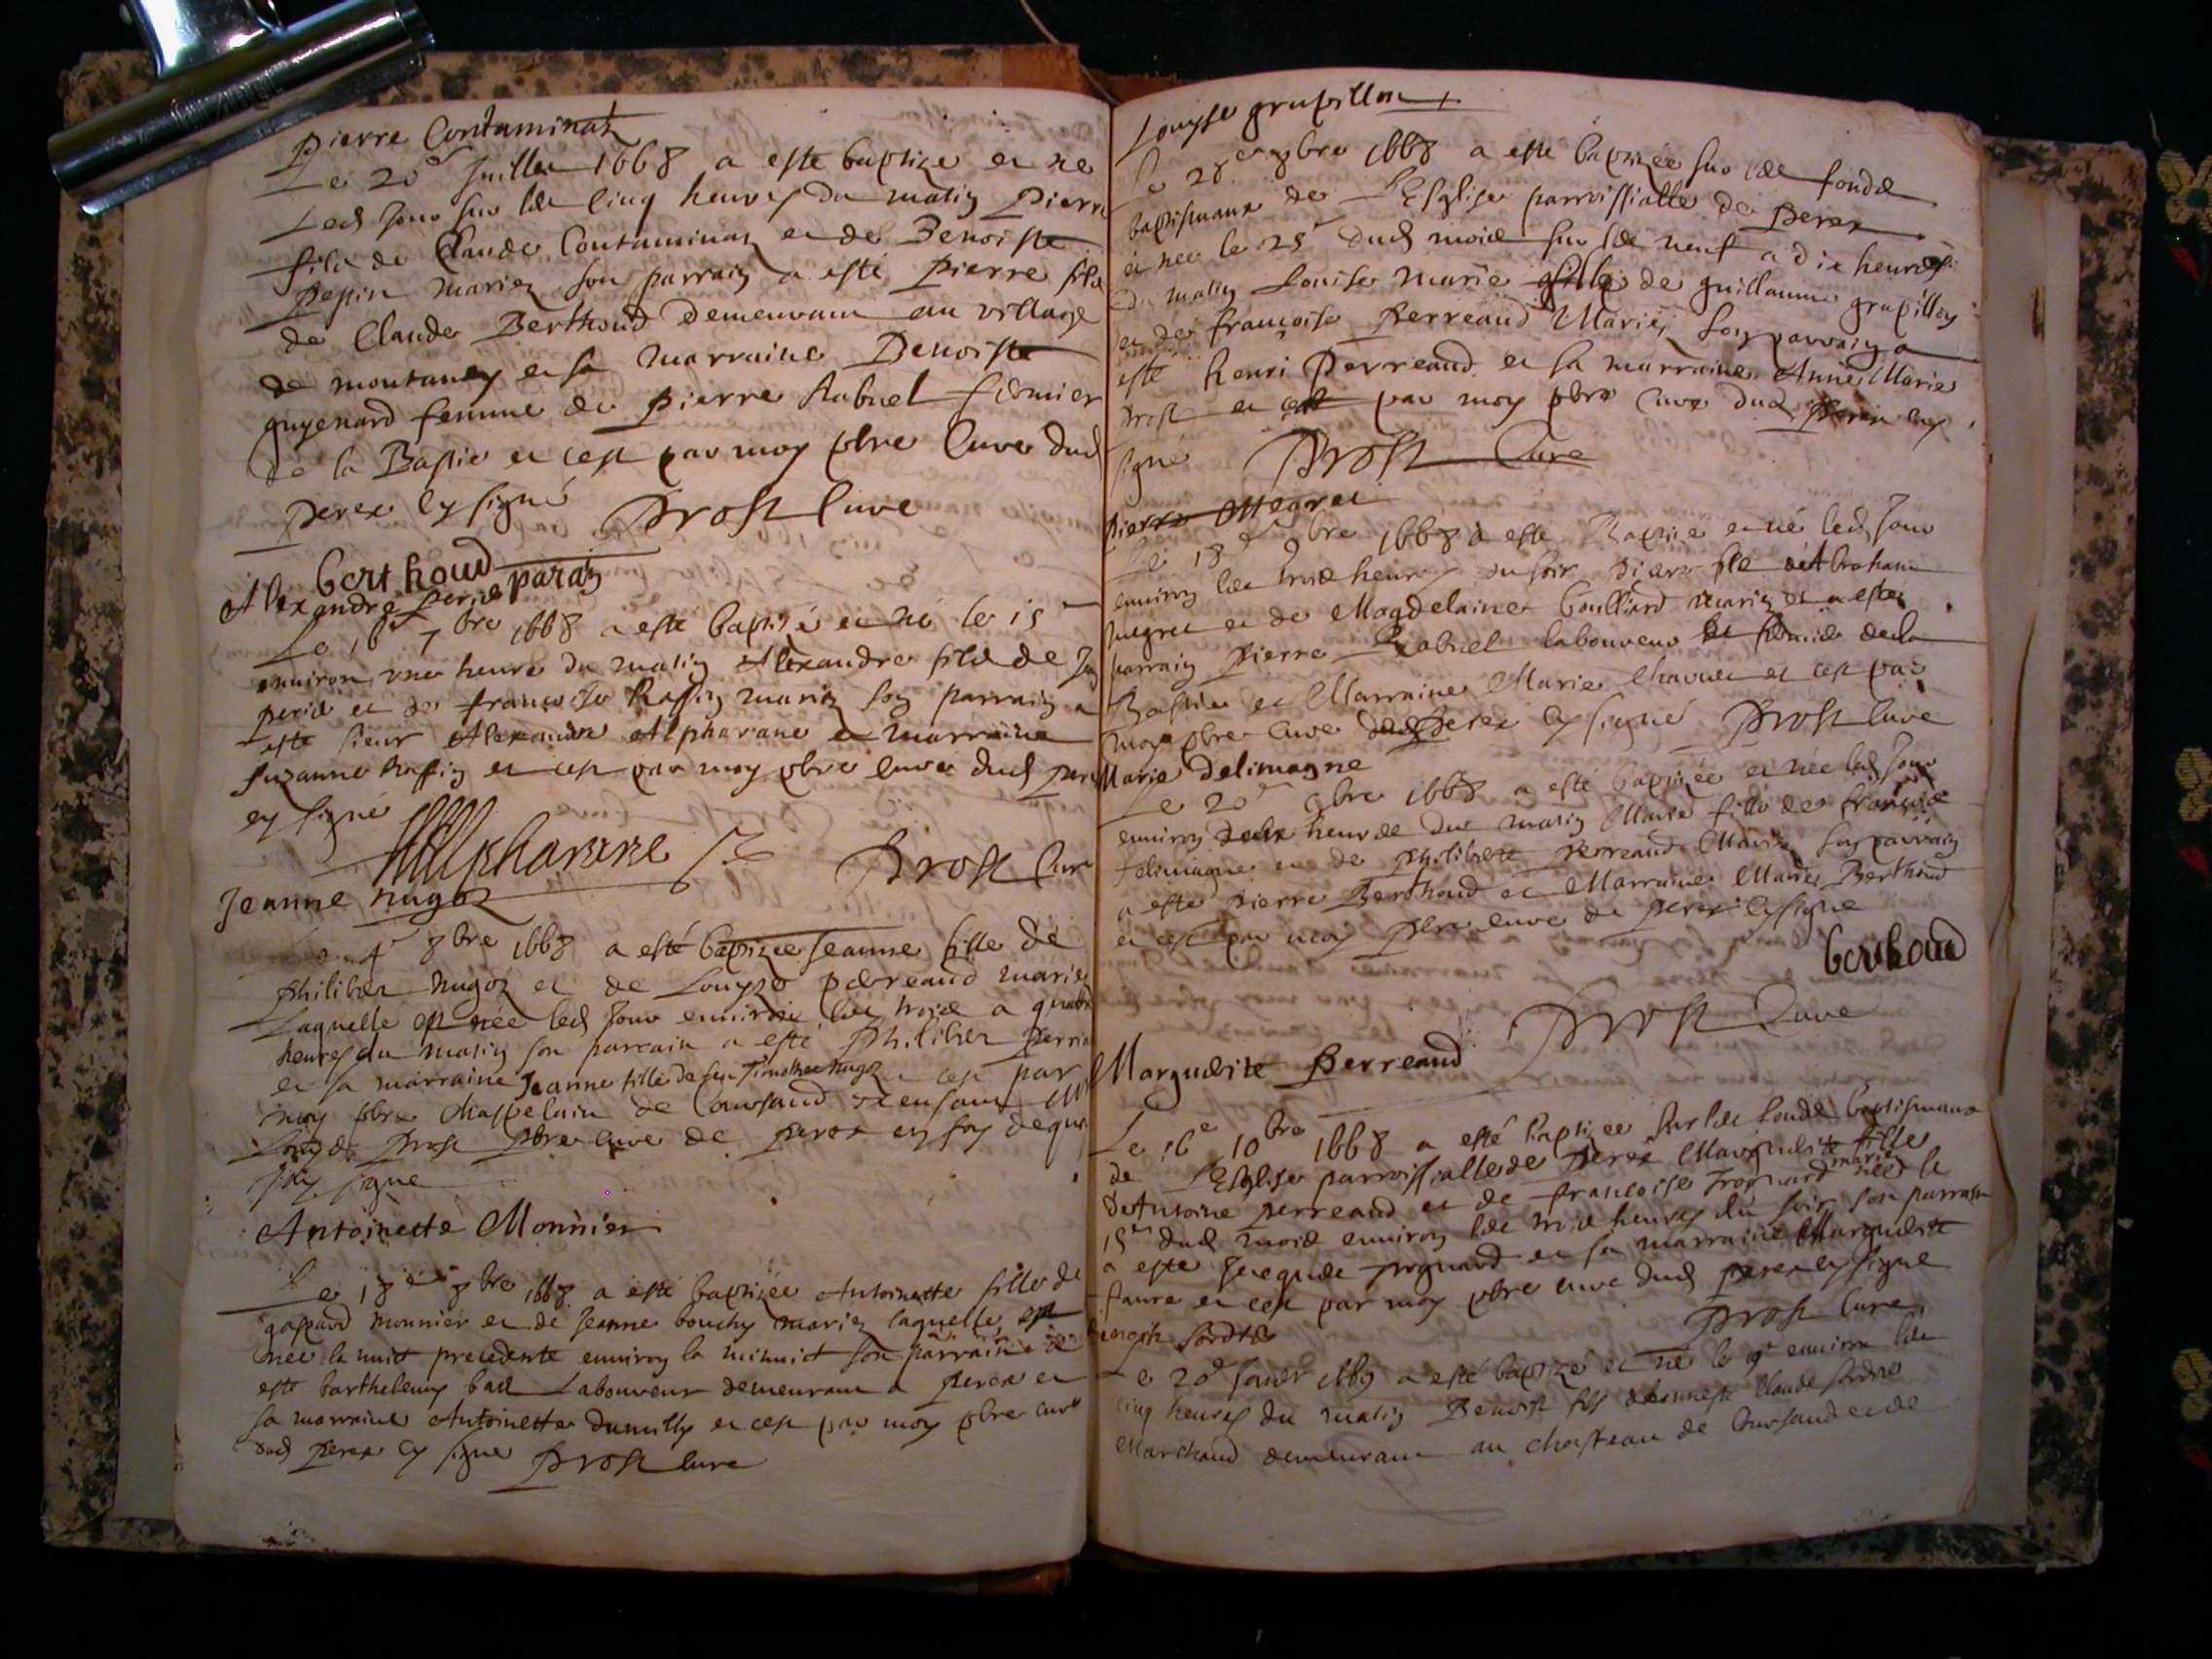 Pierre Contaminat
Le 20e Juillet 1668 a esté baptize et né
Led Jour sur les Cinq heures du matin Pierre
fils de Claude Contaminat et de Benoiste
Pepin mariez son parrain a esté Pierre fils
de Claude Berthoud demeurant au village
de montaney et sa marraine Benoiste
guyenard femme de Pierre Rabuel fermier
de la Bastie et cest par moy pbre Curé dud
Perex sy signé Prost Curé
berthoud parain
Alexandre Perie
Le 16e 7bre 1668 a esté baptizé et né le 15
environ une heure du matin Alexandre fils de
perié et de françoise Raffin mariez son parrain a
esté sieur Alexandre Alpharane et marraine
Suzanne Raffin et cest par moy pbre Curé dud
sy signé
Alpharane Prost Curé
Jeanne nugoz
Le 4e 8bre 1668 a esté baptizée Jeanne fille de
philiber nugoz et de Louyse perreaud mariez
Laquelle est née led Jour environ les trois a quattre
heures du matin son parrain a esté Philiber Perrie
et sa marraine Jeanne fille de feu Timothee nugoz cest par
moy pbre chappelain de Coursaud
prost pbre curé de perex en foy dequoy
Jay signé
Antoinette Monnier
Le 18e 8bre 1668 a esté baptizée Antoinette fille de
gaspard monnier et de Jeanne bouchy mariez laquelle est
née la nuit precedente environ la minuict son parrain
esté barthelemy Laboureur demeurant a perex et
sa marraine Antoinette dumilly et cest par moy pbre curé
dud Perex sy signé Prost Curé
Louyse grapillon
Le 28e 8bre 1668 a esté baptizée sur les fonds
baptismaux de L'Esglise parroissialle de Perex
et née le 25e dud mois sur les neuf a dix heures
du matin Louise Marie fille de guillaume grapillon
et de françoise Perreaud Mariez son parrain a
esté henri Perreaud et sa marraine Anne Marie
Prost et cest par moy pbre Curé dud Perex sy
signé Prost Curé
Pierre Megret
Le 18e 9bre 1668 a esté Baptizé et né led Jour
environ les trois heures du soir Pierre fils d'Abraham
megret et de Magdelaine boulliard mariez et a esté
parrain Pierre Rabuel laboureur et fermier de la
Bastie et Marraine Marie Chavuet et cest par
moy pbre Curé dud Perex sy signé Prost Curé
Marie delimagne
Le 20e 9bre 1668 a esté baptizée et née led Jour
environ deux heures du matin Marie fille de françois
delimagne et de philiberte perreaud Mariez son parrain
a esté Pierre Berthoud et Marraine Marie Berthoud
et cest par moy pbre curé de perex sy signé
berhoud
Prost Curé
Marguerite Perreaud
Le 16e 10bre 1668 a esté baptizée sur les fonds baptismaux
de L'Esglise parroissialle de Perex Marguerite fille
d'Antoine perreaud et de françoise Trognard mariez née le
15e dud mois environ les trois heures du soir son parrain
a esté Trognard et sa marraine Marguerite
faure et cest par moy pbre curé dud perex sy signé
Prost Curé
Benoist Sordre
Le 20e Janvr 1669 a esté baptizé et né le 9e environ les
cinq heures du matin Benoist fils d'honneste Claude Sordre
Marchand demeurant au chasteau de Coursaud et de